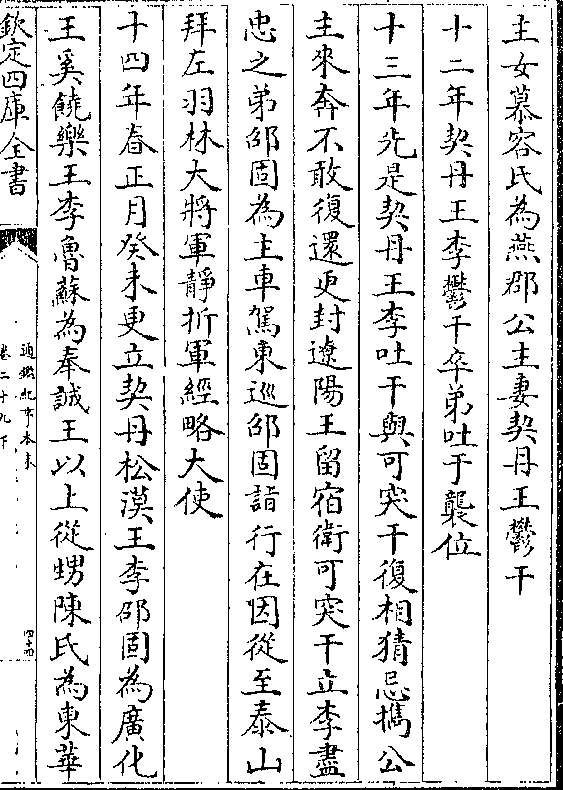 主女慕容氏為燕郡公主妻契丹王鬱干
十二年契丹王李鬱干卒弟吐干襲位
十三年先是契丹王李吐干與可突干復相猜忌攜公
主來奔不敢復還更封遼陽王留宿衛可突干立李盡
忠之弟邵固為主車駕東巡邵固詣行在因從至泰山
拜左羽林大將軍靜折軍經略大使
十四年春正月癸未更立契丹松漠王李邵固為廣化
王奚饒樂王李魯蘇為奉誠王以上從甥陳氏為東華
欽定四庫全書
通鑑紀事本末
卷二十九下